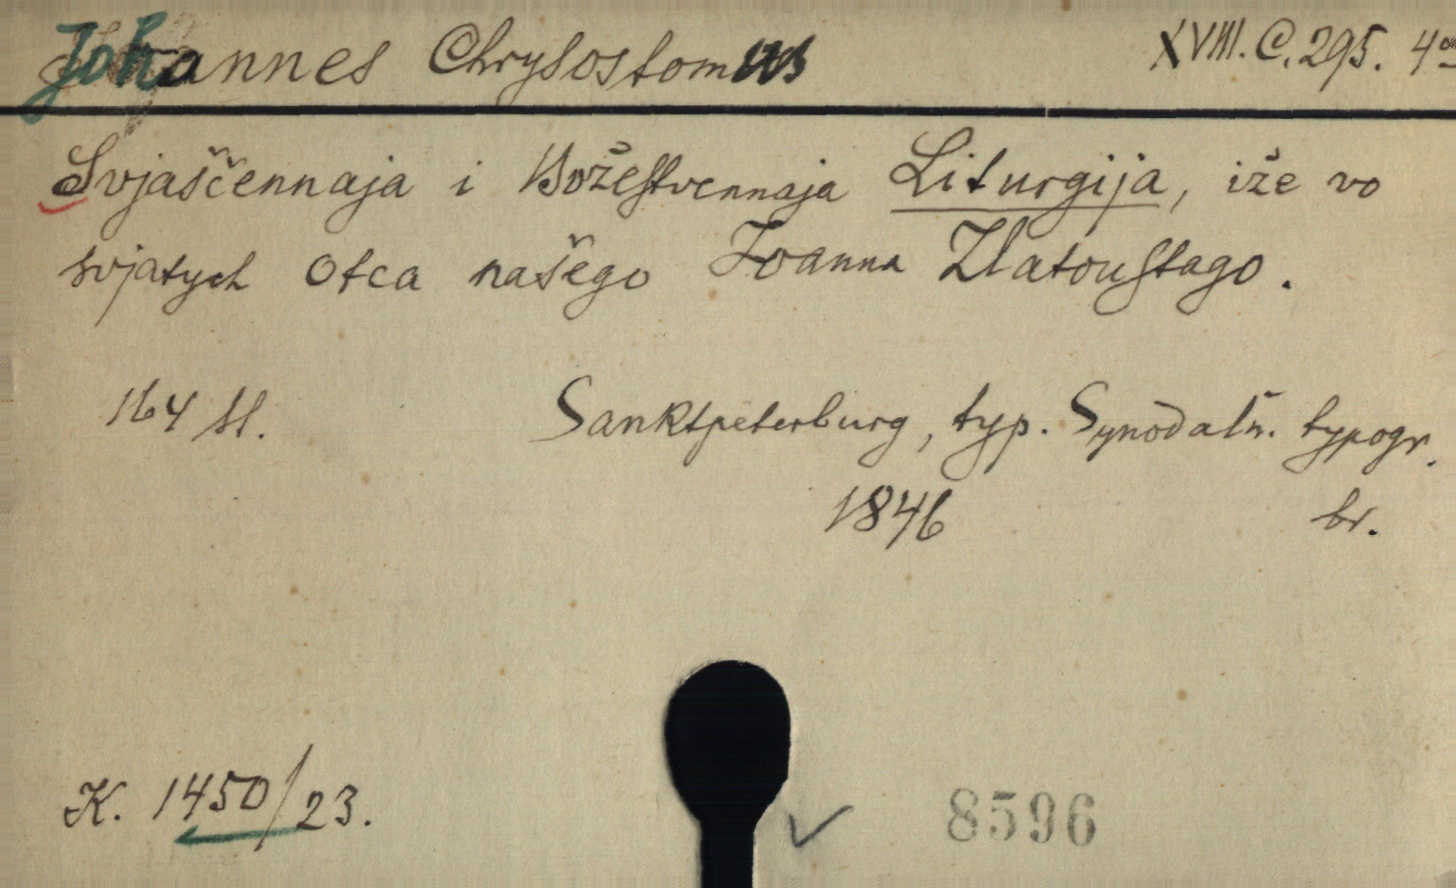 Johannes Chrysostomus XVIII. C. 295. 4°
Svjaščennaja i Božestvennaja Liturgija, iže vo
svjatych otca našego Ioanna Zlatoustago.
164 sl. Sanktpeterburg, typ. Synodaľn. typogr.
1846 br.
K. 1450/23. 8596